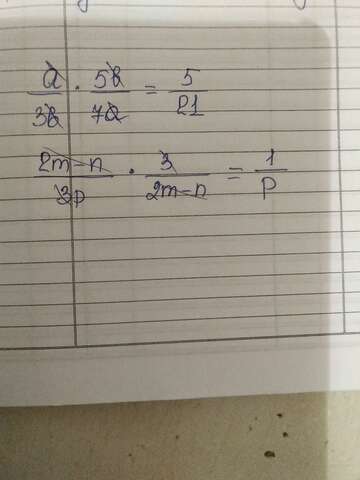 a/3b · 5b/7a = 5/21
2m-n/3p · 3/2m-n = 1/p